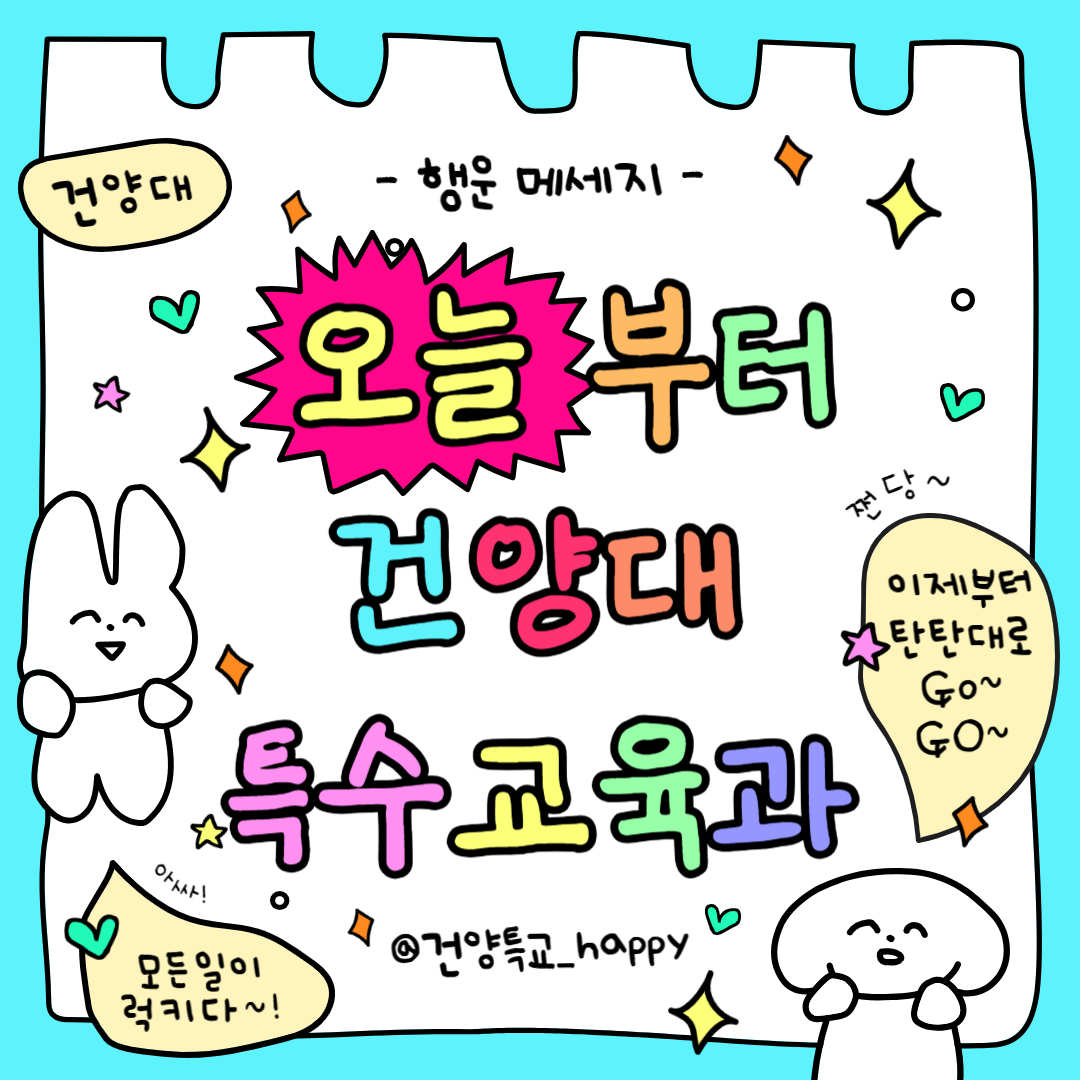 건양대
- 행운 메세지 -
오늘부터
건양대
특수교육과
쩐당~
이제부터
탄탄대로
Go~
GO~
아싸!
모든일이
럭키다~!
@건양특교_happy